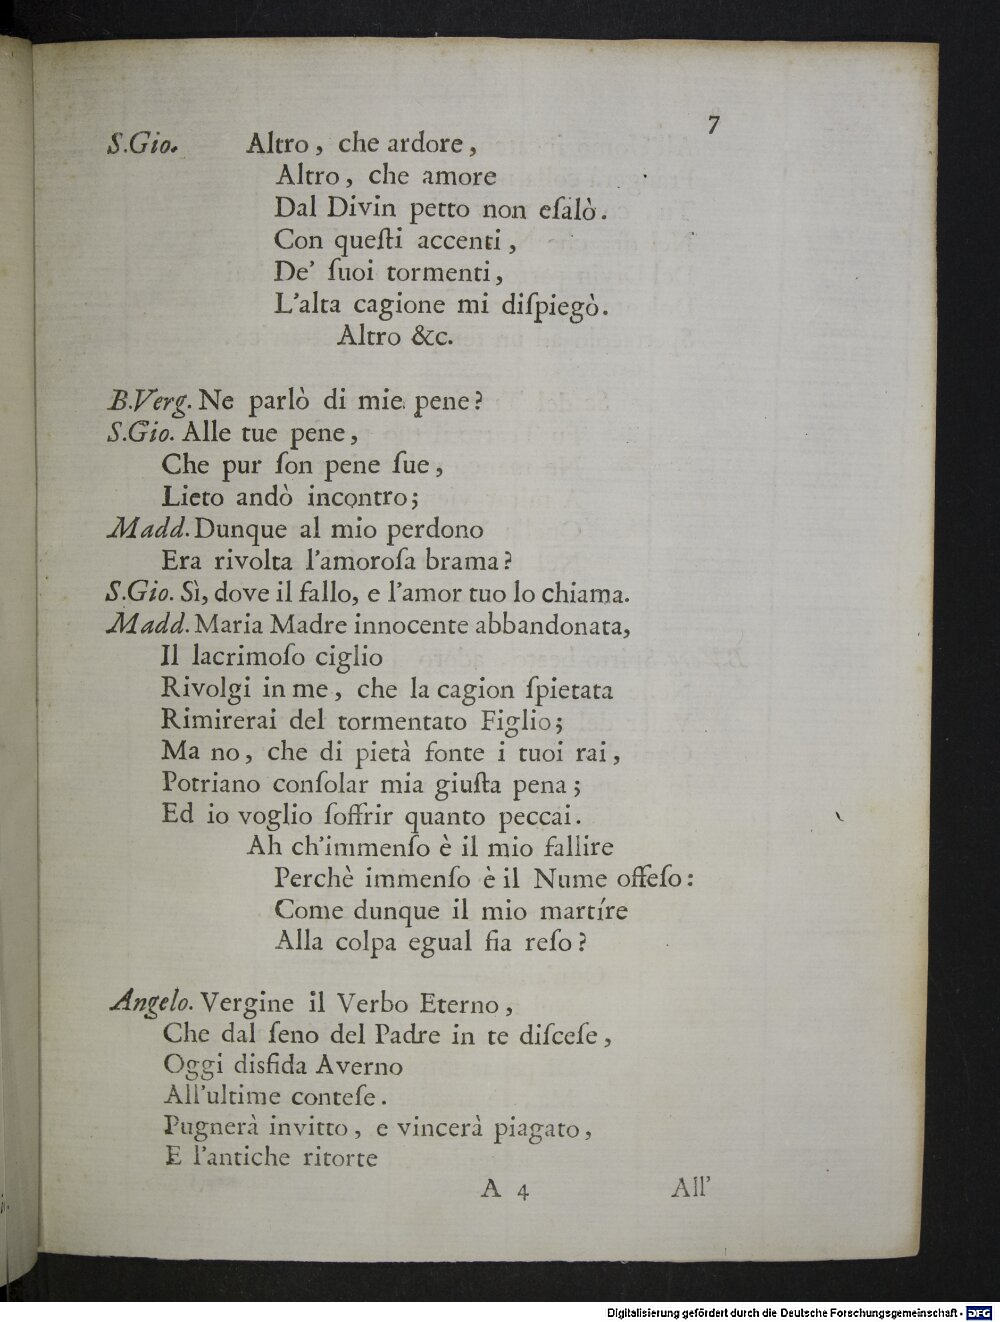 7
S.Gio. Altro, che ardore,
Altro, che amore
Dal Divin petto non eſalò.
Con queſti accenti,
De' ſuoi tormenti,
L'alta cagione mi diſpiegò.
Altro &c.
B.Verg. Ne parlò di mie pene?
S.Gio. Alle tue pene,
Che pur ſon pene ſue,
Lieto andò incontro;
Madd. Dunque al mio perdono
Era rivolta l'amoroſa brama?
S.Gio. Sì, dove il fallo, e l'amor tuo lo chiama.
Madd. Maria Madre innocente abbandonata,
Il lacrimoſo ciglio
Rivolgi in me, che la cagion ſpietata
Rimirerai del tormentato Figlio;
Ma no, che di pietà fonte i tuoi rai,
Potriano conſolar mia giuſta pena;
Ed io voglio ſoffrir quanto peccai.
Ah ch'immenſo è il mio fallire
Perchè immenſo è il Nume offeſo:
Come dunque il mio martíre
Alla colpa egual ſia reſo?
Angelo. Vergine il Verbo Eterno,
Che dal ſeno del Padre in te diſceſe,
Oggi disfida Averno
All'ultime conteſe.
Pugnerà invitto, e vincerà piagato,
E l'antiche ritorte
A 4 All'
Digitalisierung gefördert durch die Deutsche Forschungsgemeinschaft - DFG